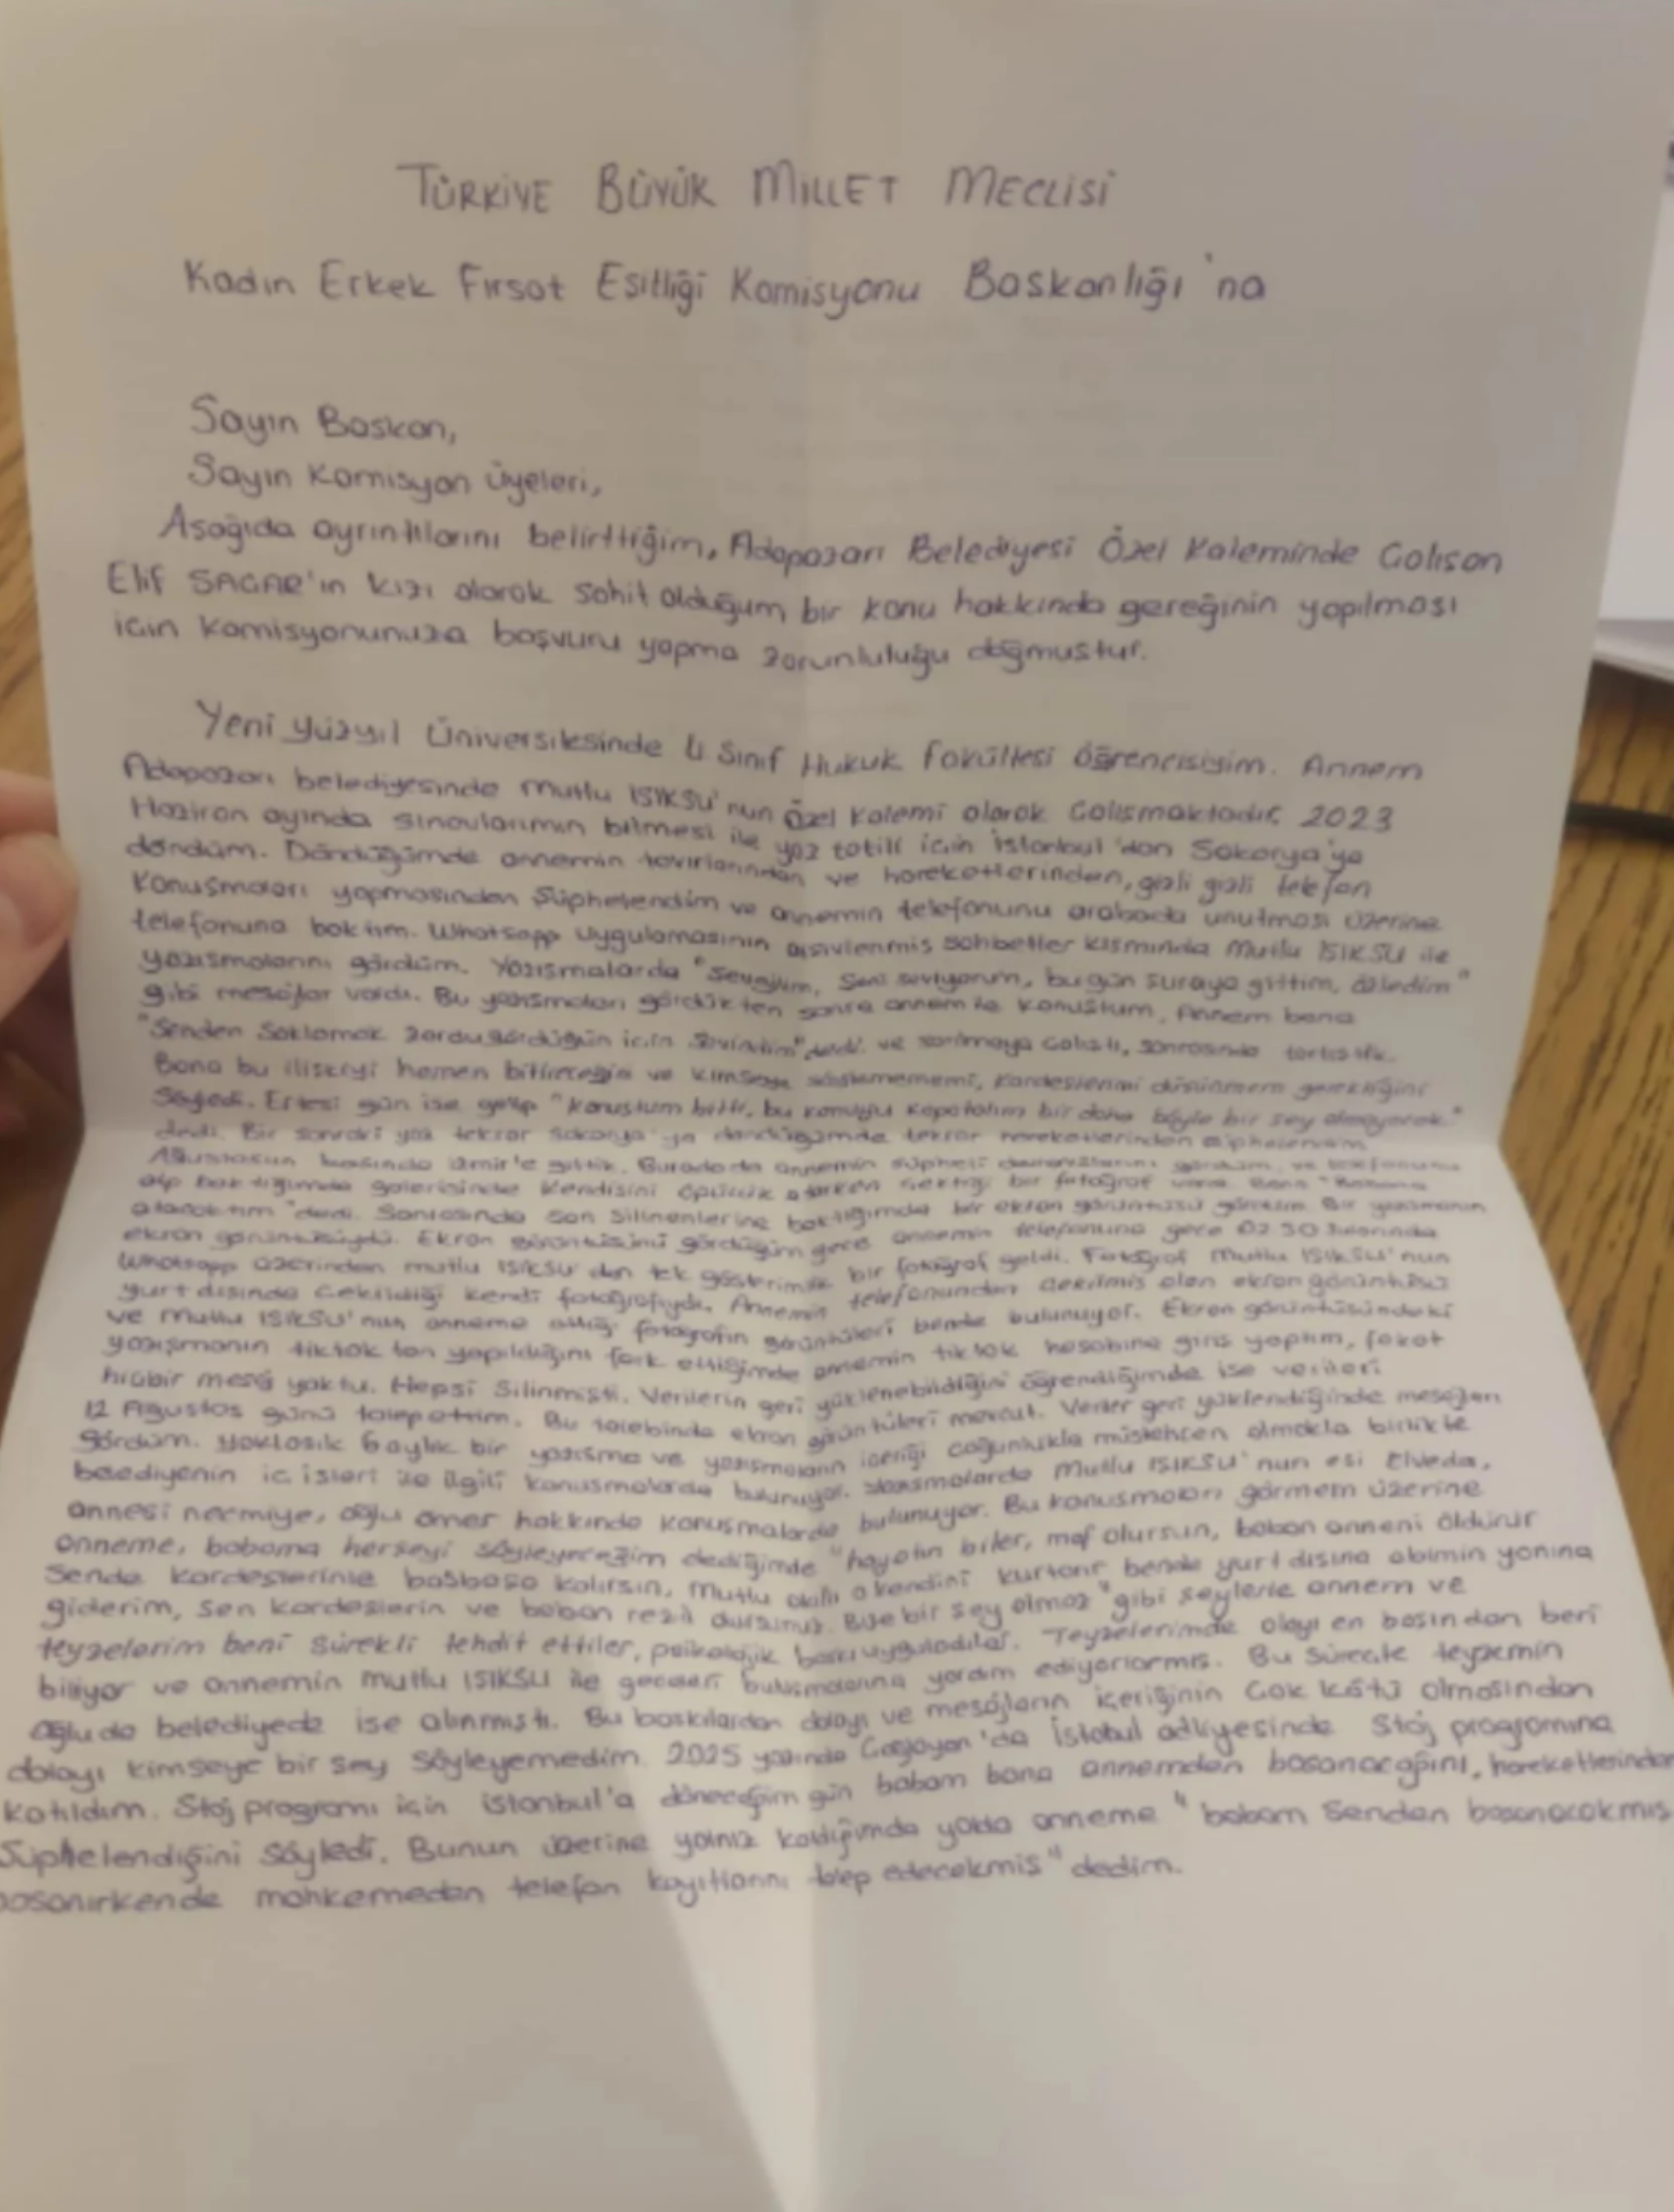 TÜRKİYE BÜYÜK MİLLET MECLİSİ
Kadın Erkek Fırsat Esitliği Komisyonu Baskanlığı'na
Sayın Baskan,
Sayın Komisyon Üyeleri,
Asağıda ayrıntılarını belirttiğim, Adapazarı Belediyesi Özel Kaleminde Calısan
Elif SACAR'ın kızı olarak sahit olduğum bir konu hakkında gereğinin yapılması
icin Komisyonunuza başvuru yapma zorunluluğu doğmustur.
Yeni Yüzyıl Üniversitesinde 4 Sınıf Hukuk fakültesi öğrencisiyim. Annem
Adapazarı belediyesinde Mutlu IŞIKSU'nun Özel Kalemi olarak Calısmaktadır. 2023
Haziran ayında sınavlarımın bitmesi ile yaz tatili icin İstanbul'dan Sakarya'ya
döndüm. Döndüğümde annemin tavırlarından ve hareketlerinden, gizli gizli telefon
Konusmaları yapmasından Şüphelendim ve annemin telefonunu arabada unutması üzerine
telefonuna baktım. Whatsapp uygulamasının arsivlenmis sohbetler kısmında Mutlu ISIKSU ile
yazısmalarını gördüm. Yazısmalarda "Sevgilim, Seni seviyorum, bugün suraya gittim, özledim"
gibi mesajlar vardı. Bu yazısmaları gördükten sonra annem ile konuştum, Annem bana
"Senden Saklamak zordu gördüğün icin sevindim" dedi ve sarılmaya calıstı, sonrasında tartıstık.
Bana bu iliskiyi hemen bitireceğini ve kimseye söylemememi, kardeslerimi düsünmem gerektiğini
Söyledi. Ertesi gün ise gelip "Konustum bitti, bu konuyu kapatalım bir daha böyle bir sey olmayacak."
dedi. Bir sonraki yaz tekrar Sakarya'ya döndüğümde tekrar hareketlerinden süphelendim
Ağustosun basında izmir'e gittik. Burada da annemin süpheli davranıslarını gördüm ve telefonunu
alıp baktığımda galerisinde kendisini öpücük atarken cektiği bir fotoğraf vardı. Bana "Babana
atacaktım" dedi. Sonrasında son silinenlerine baktığımda bir ekran görüntüsü gördüm. Bir yazısmanın
ekran görüntüsüydü. Ekran görüntüsünü gördüğüm gece annemin telefonuna gece 02 30 sularında
Whatsapp üzerinden mutlu ISIKSU'dan tek gösterimlik bir fotoğraf geldi. Fotoğraf Mutlu ISIKSU'nun
yurt disında cekildiği kendi fotoğrafıydı. Annemin telefonundan cekilmis olan ekran görüntüsü
ve Mutlu ISIKSU'nun anneme attığı fotoğrafın görüntüleri bende bulunuyor. Ekran görüntüsündeki
yazışmanın tiktok tan yapıldığını fark ettiğimde annemin tiktok hesabına giris yaptım, fakat
hicbir mesaj yoktu. Hepsi Silinmisti. Verilerin geri yüklenebildiğini öğrendiğimde ise verileri
12 Ağustos günü talep ettim. Bu talebinde ekran görüntüleri mevcut. Veriler geri yüklendiğinde mesajları
gördüm. Yaklasık 6 aylık bir yazısma ve yazısmaların iceriği coğunlukla müstehcen olmakla birlikte
belediyenin ic isleri ile ilgili konusmalarda bulunuyor. Yazısmalarda Mutlu ISIKSU'nun esi Elveda,
annesi necmiye, oğlu ömer hakkında konusmalarda bulunuyor. Bu konusmaları görmem üzerine
anneme, babama herseyi söyleyeceğim dediğimde "hayatın biter, maf olursun, baban anneni öldürür
Sende kardeslerinle basbasa kalırsın, Mutlu akıllı o kendini kurtarır bende yurt dısına abimin yanına
giderim, sen kardeslerin ve baban rezil olursunuz. Bize bir sey olmaz" gibi seylerle annem ve
teyzelerim beni sürekli tehdit ettiler, psikolojik baskı uyguladılar. Teyzelerimde olayı en basından beri
biliyor ve annemin mutlu ISIKSU ile geceleri bulusmalarına yardım ediyorlarmıs. Bu sürecte teyzemin
oğlu da belediyede ise alınmıstı. Bu baskılardan dolayı ve mesajların içeriğinin cok kötü olmasından
dolayı kimseye bir sey söyleyemedim. 2025 yazında Caglayan'da İstabul adliyesinde Staj programına
katıldım. Staj programı icin istanbul'a döneceğim gün babam bana annemden bosanacağını, hareketlerinden
Süphelendiğini söyledi. Bunun üzerine yalnız kaldığımda yolda anneme "babam senden bosanacakmıs
bosanırkende mahkemeden telefon kayıtlarını talep edecekmis" dedim.